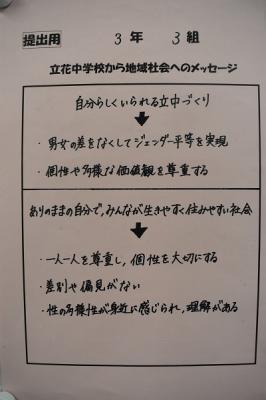 提出用 3年 3組
立花中学校から地域社会へのメッセージ
自分らしくいられる立中づくり
・男女の差をなくしてジェンダー平等を実現
・個性や多様な価値観を尊重する
ありのままの自分で,みんなが生きやすく住みやすい社会
・一人一人を尊重し,個性を大切にする
・差別や偏見がない
・性の多様性が身近に感じられ,理解がある